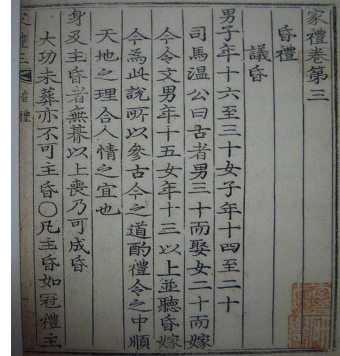 家禮卷第三
昏禮
議昏
男子年十六至三十女子年十四至二十
司馬温公曰古者男三十而娶女二十而嫁
今令文男年十五女年十三以上並聽昏嫁
今為此說所以參古今之道酌禮令之中順
天地之理合人情之宜也
身及主昏者無朞以上喪乃可成昏
大功未葬亦不可主昏〇凡主昏如冠禮主